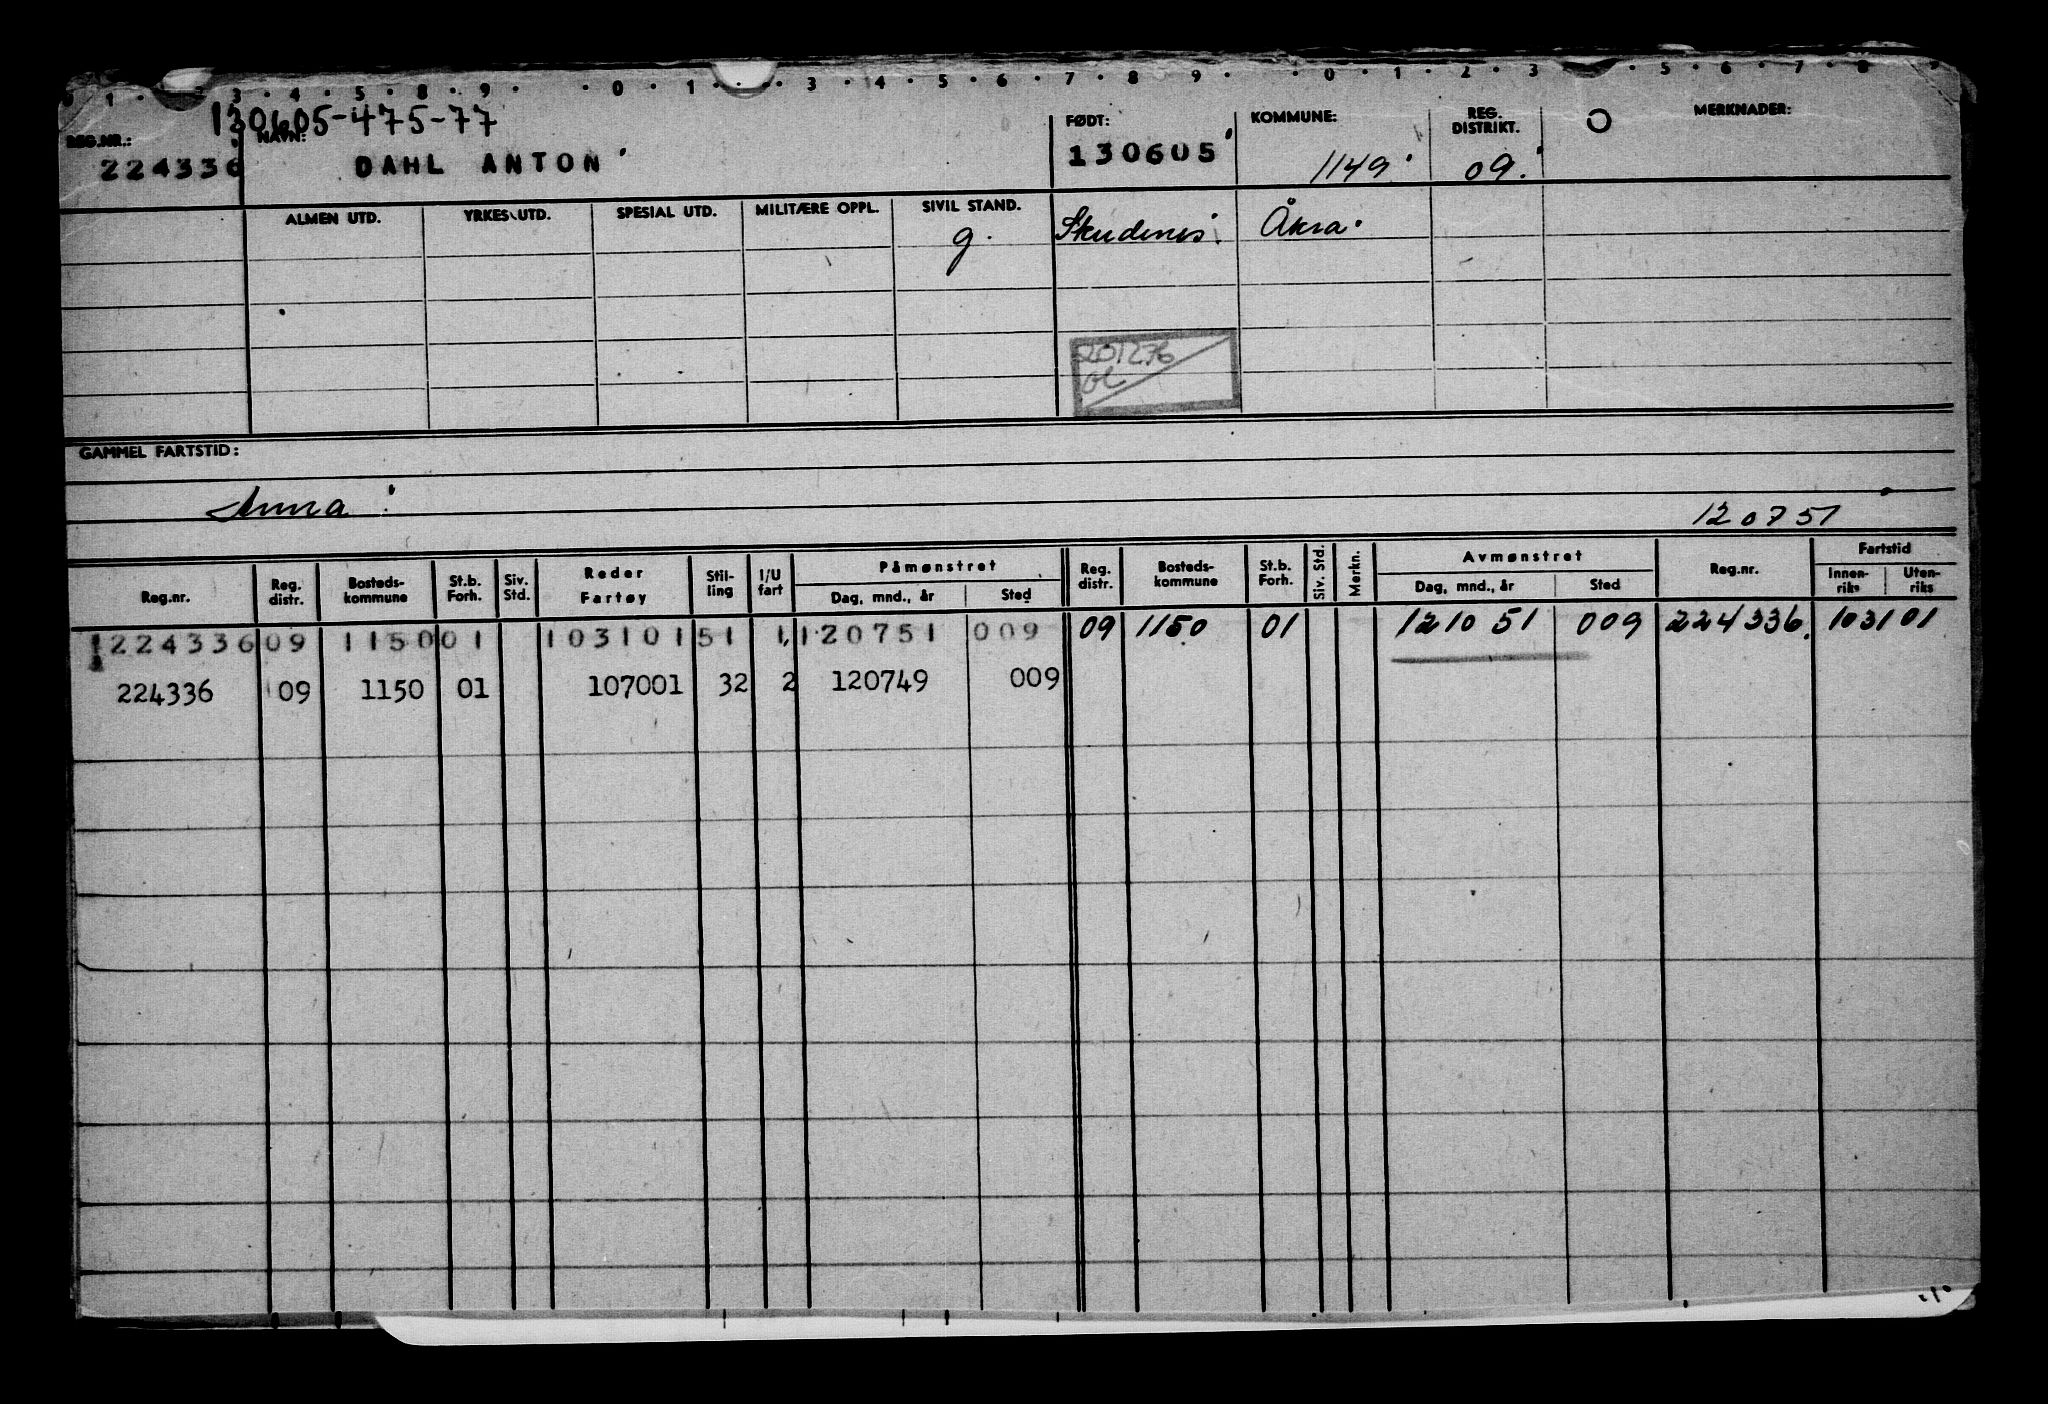 0 1 2 3 4 5 8 9 0 1 3 4 5 6 7 8 9 0 1 2 3 5 6 7 8
130605-475-77
REG.NR.: NAVN: FØDT: KOMMUNE: REG. DISTRIKT. MERKNADER:
224336 DAHL ANTON 130605 1149 09.
ALMEN UTD. YRKES UTD. SPESIAL UTD. MILITÆRE OPPL. SIVIL STAND.
g. Skudenes. Åkra.
201276
OL
GAMMEL FARTSTID:
Anna
120751
Reg.nr. Reg. distr. Bosteds-kommune St.b. Forh. Siv. Std. Reder Fartøy Stil-ling I/U fart Påmønstret Dag, mnd., år Sted Reg. distr. Bosteds-kommune St.b. Forh. Siv. Std. Merkn. Avmønstret Dag, mnd., år Sted Reg.nr. Fartstid Innen-riks Uten-riks
224336 09 1150 01 103101 51 1 120751 009 09 1150 01 121051 009 224336. 103101
224336 09 1150 01 107001 32 2 120749 009